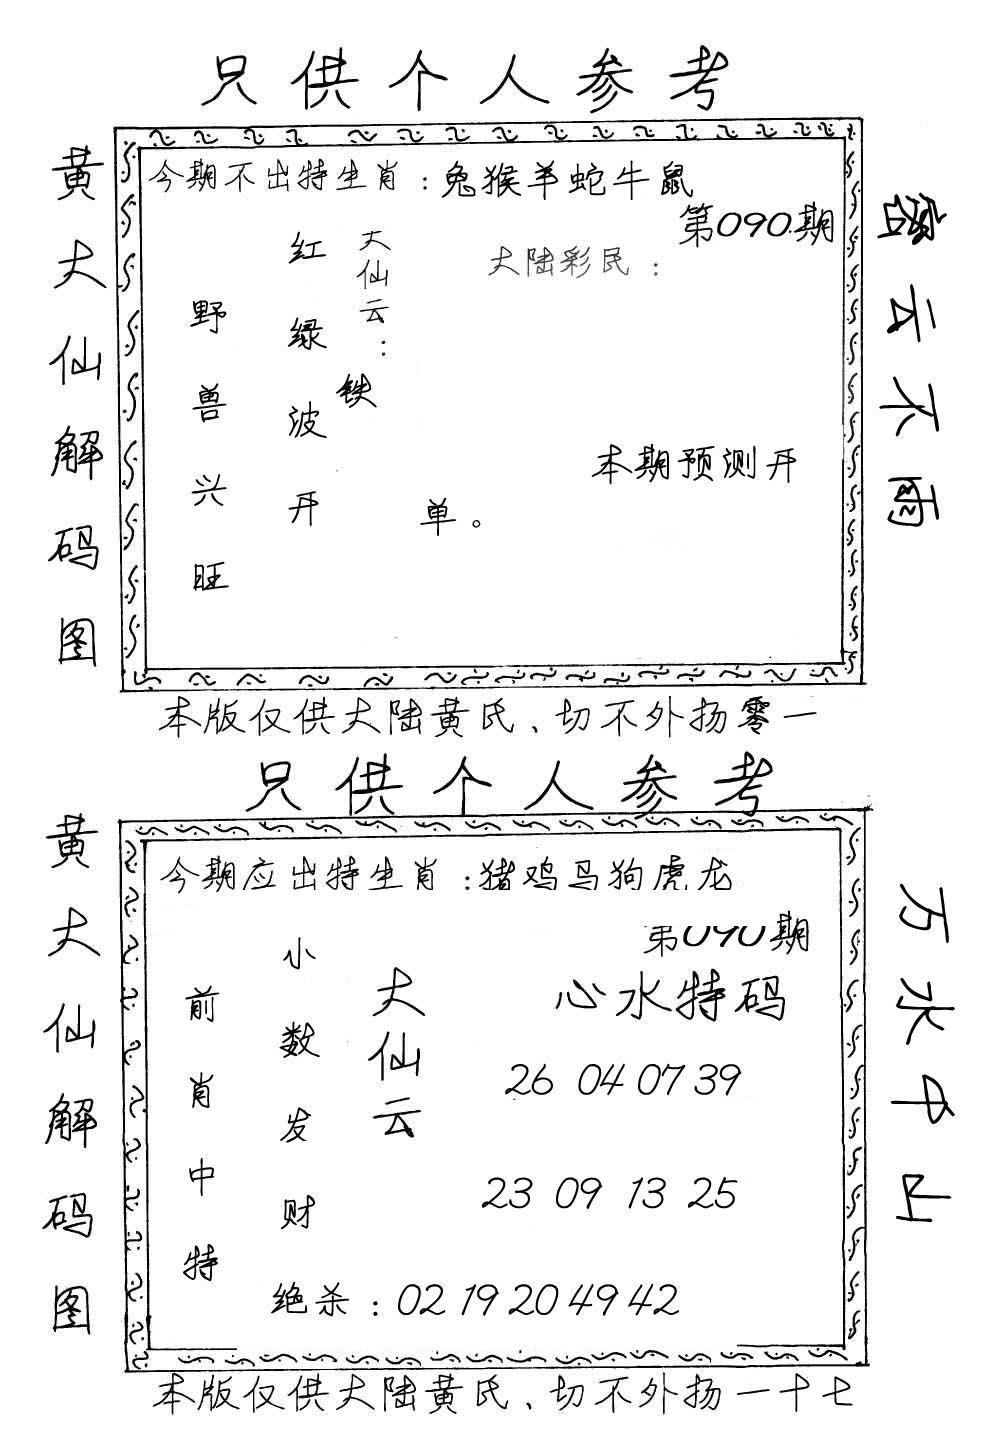 只供个人参考
黄大仙解码图
今期不出特生肖：兔猴羊蛇牛鼠
第090.期
大陆彩民：
大仙云：
铁
红绿波开
单。
野兽兴旺
本期预测开
密云不雨
本版仅供大陆黄氏、切不外扬零一
只供个人参考
黄大仙解码图
今期应出特生肖：猪鸡马狗虎龙
第090期
心水特码
大仙云
小数发财
前肖中特
26 04 07 39
23 09 13 25
绝杀：02 19 20 49 42
万水中山
本版仅供大陆黄氏、切不外扬一十七